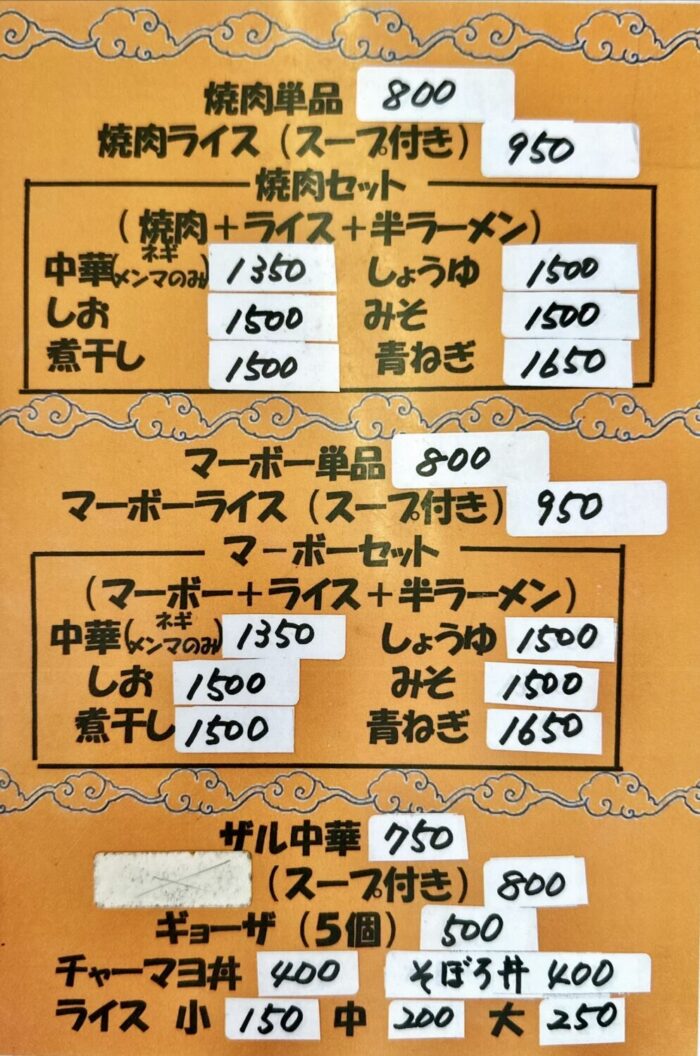 焼肉単品 800
焼肉ライス（スープ付き） 950
焼肉セット
（焼肉＋ライス＋半ラーメン）
中華（ネギメンマのみ） 1350 しょうゆ 1500
しお 1500 みそ 1500
煮干し 1500 青ねぎ 1650
マーボー単品 800
マーボーライス（スープ付き） 950
マーボーセット
（マーボー＋ライス＋半ラーメン）
中華（ネギメンマのみ） 1350 しょうゆ 1500
しお 1500 みそ 1500
煮干し 1500 青ねぎ 1650
ザル中華 750
（スープ付き） 800
ギョーザ（5個） 500
チャーマヨ丼 400 そぼろ丼 400
ライス 小 150 中 200 大 250